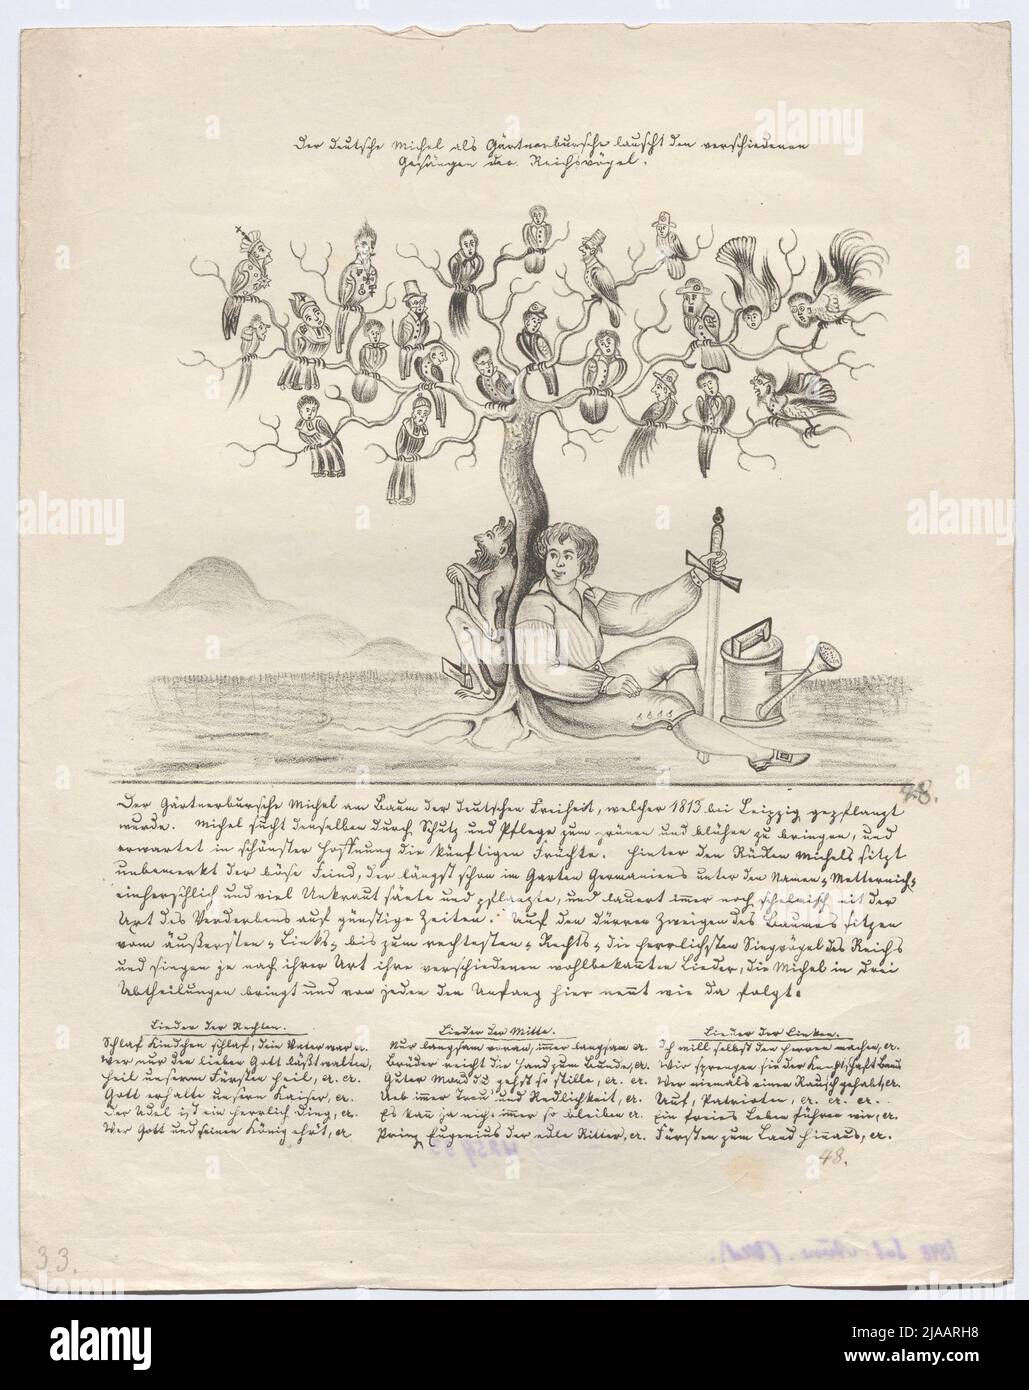 Der deutsche Michel als Gärtnerbursche lauscht den verschiedenen
Gesängen der Reichsvögel.
Der Gärtnerbursche Michel am Baum der deutschen Freiheit, welcher 1813 bei Leipzig gepflanzt
wurde. Michel sucht denselben durch Schutz und Pflege zum grünen und blühen zu bringen, und
erwartet in schönster Hoffnung die künftigen Früchte. Hinter den Rücken Michels sitzt
unbemerkt der böse Feind, der längst schon im Garten Germaniens unter den Namen „Metternich“
einherschlich und viel Unkraut säete und pflanzte, und lauert immer noch schelmisch mit der
Art des Verderbens auf günstige Zeiten. Auf den dürren Zweigen des Baumes sitzen
vom äußersten „Links“ bis zum rechtesten „Rechts“ die herrlichsten Singvögel des Reichs
und singen je nach ihrer Art ihre verschiedenen wohlbekannten Lieder, die Michel in drei
Abtheilungen bringt und von jeden den Anfang hier nennt wie da folgt.
48.
Lieder der Rechten.
Schlaf Kindchen schlaf, dein Vater war er.
Wer nur den lieben Gott läßt walten,
Heil unserm Fürsten heil, er. er.
Gott erhalte unsern Kaiser, er.
Der Adel ist ein herrlich Ding, er.
Wer Gott und seinen König ehrt, er
Lieder der Mitte.
Nur langsam voran, immer langsam er.
Brüder reicht die Hand zum Bunde, er.
Guter Mond du gehst so stille, er. er.
Ueb immer Treu und Redlichkeit, er.
Es kann ja nicht immer so bleiben er.
Prinz Eugenius der edle Ritter, er.
Lieder der Linken.
Ich will selbst den Herren machen, er.
Wir sprengen sie der Knechtschaft Band
Wer niemals einen Rausch gehabt, er.
Auf, Patrioten, er. er. er.
Ein freies Leben führen wir, er.
Fürsten zum Land hinaus, er.
48.
33.
alamy
Image ID: 2JAARH8
www.alamy.com